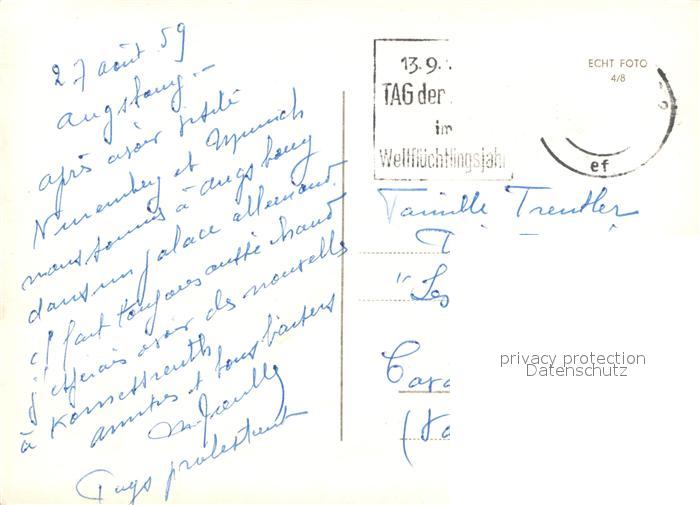 27 août 59
Augsbourg. —
après avoir visité
Nuremberg et Munich
nous sommes à Augsbourg
dans un palace allemand.
il fait toujours aussi chaud
j'espérais avoir des nouvelles
à
amitiés et bons baisers
Pays protestant
13.9.
TAG der
im
Weltflüchtlingsjahr
ECHT FOTO
4/8
ef
Famille Trentler
"Les
Cava
privacy protection
Datenschutz